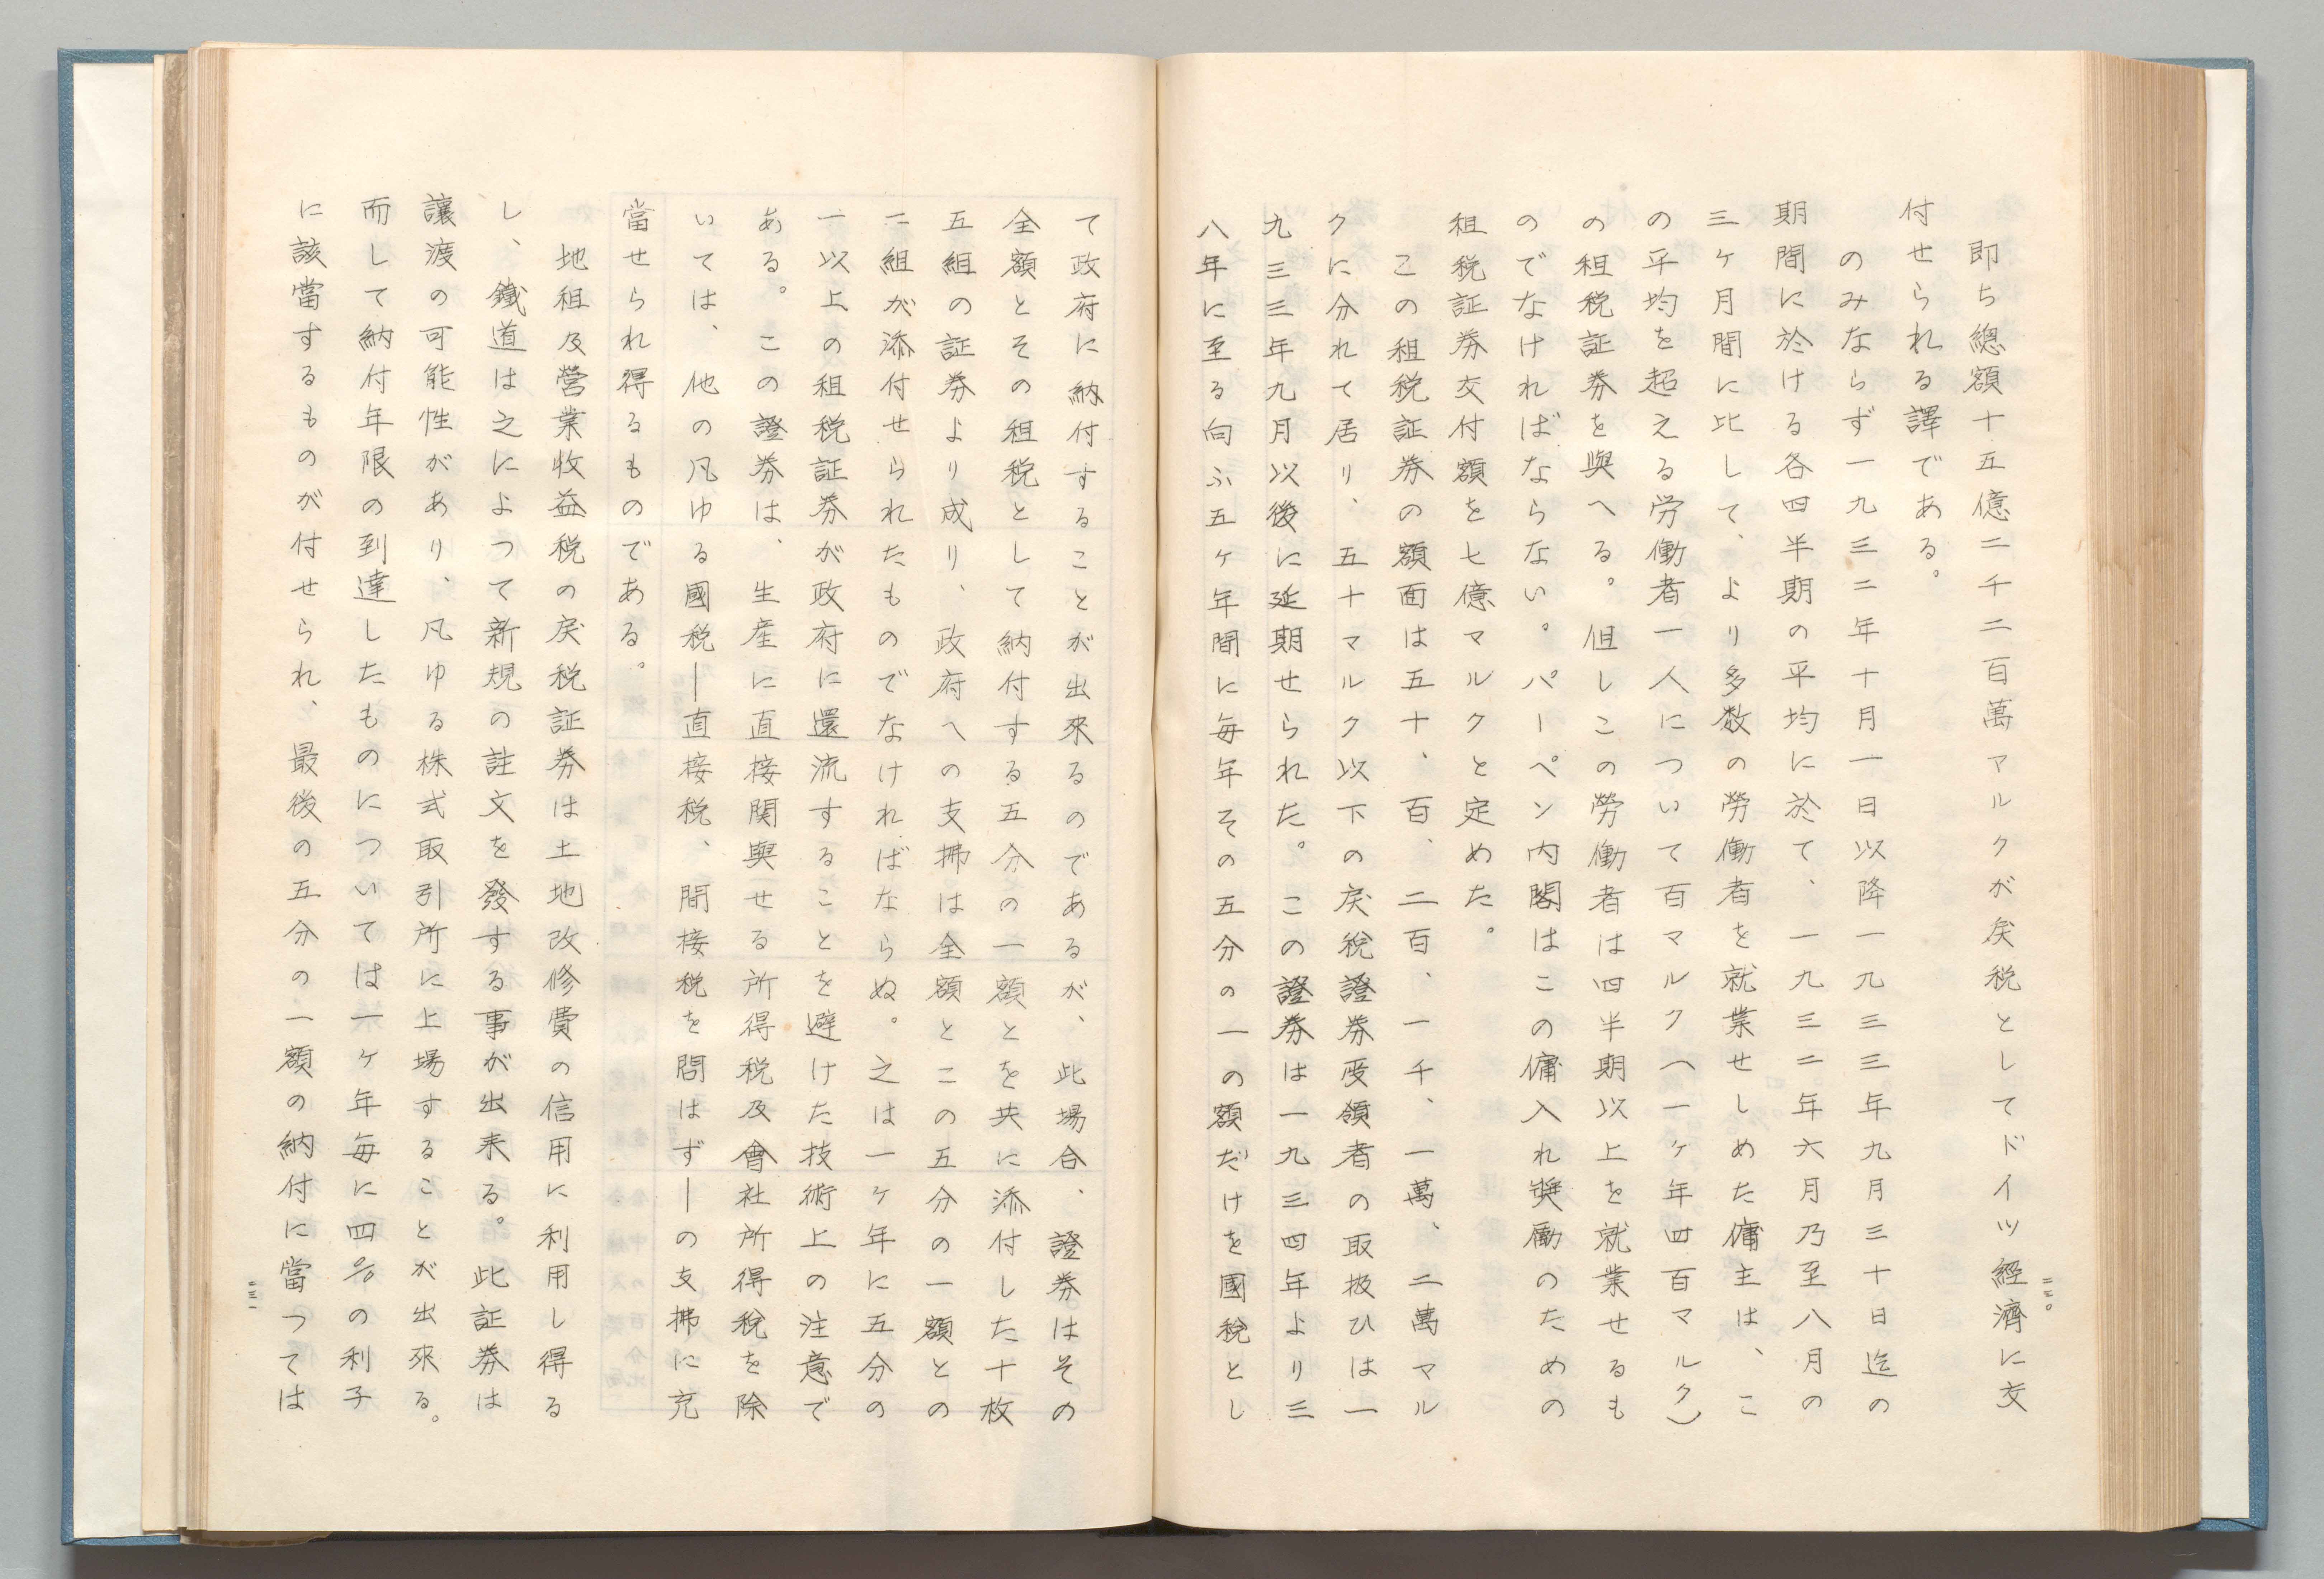 二三〇
即ち總額十五億二千二百萬マルクが戻税としてドイツ經濟に交
付せられる譯である。
のみならず一九三二年十月一日以降一九三三年九月三十日迄の
期間に於ける各四半期の平均に於て、一九三二年六月乃至八月の
三ケ月間に比して、より多数の勞働者を就業せしめた傭主は、こ
の平均を超える労働者一人について百マルク（一ケ年四百マルク）
の租税証券を與へる。但しこの勞働者は四半期以上を就業せるも
のでなければならない。パーペン内閣はこの傭入れ奬勵のための
租税証券交付額を七億マルクと定めた。
この租税証券の額面は五十、百、二百、一千、一萬、二萬マル
クに分れて居り、五十マルク以下の戻稅證券受領者の取扱ひは一
九三三年九月以後に延期せられた。この證券は一九三四年より三
八年に至る向ふ五ケ年間に毎年その五分の一の額だけを國稅とし
て政府に納付することが出來るのであるが、此場合、證券はその
全額とその租税として納付する五分の一額とを共に添付した十枚
五組の証券より成り、政府への支拂は全額とこの五分の一額との
二組が添付せられたものでなければならぬ。之は一ケ年に五分の
一以上の租税証券が政府に還流することを避けた技術上の注意で
ある。この證券は、生産に直接関與せる所得税及會社所得税を除
いては、他の凡ゆる國税―直接税、間接税を問はず―の支拂に充
當せられ得るものである。
地租及営業收益税の戻税証券は土地改修費の信用に利用し得る
し、鐵道は之によつて新規の註文を發する事が出来る。此証券は
讓渡の可能性があり、凡ゆる株式取引所に上場することが出來る。
而して納付年限の到達したものについては一ケ年毎に四%の利子
に該當するものが付せられ、最後の五分の一額の納付に當つては
二三一